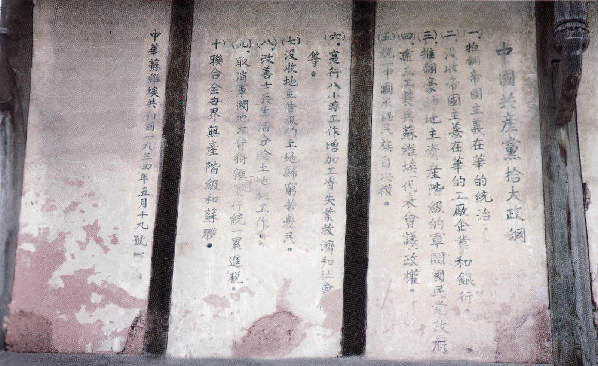 中國共產黨拾大政綱
一、推翻帝國主義在華的統治。
二、沒收帝國主義在華的工廠企業和銀行。
三、推翻豪紳地主資產階級的軍閥國民党政府
四、建立工農兵蘇維埃代表會議政權。
(五)統一中國承認民族自決權。
(六、實行八小時工作增加工資失業救濟和社會
等。
(七、沒收地主 的土地歸窮苦農民。
(八、改善士兵生活分給土地和工作。
(九、取消軍閥地方苛捐 統一累進税。
十、聯合全世界無產階級和蘇聯。
中華蘇維埃共和國一九三四年五月十九號